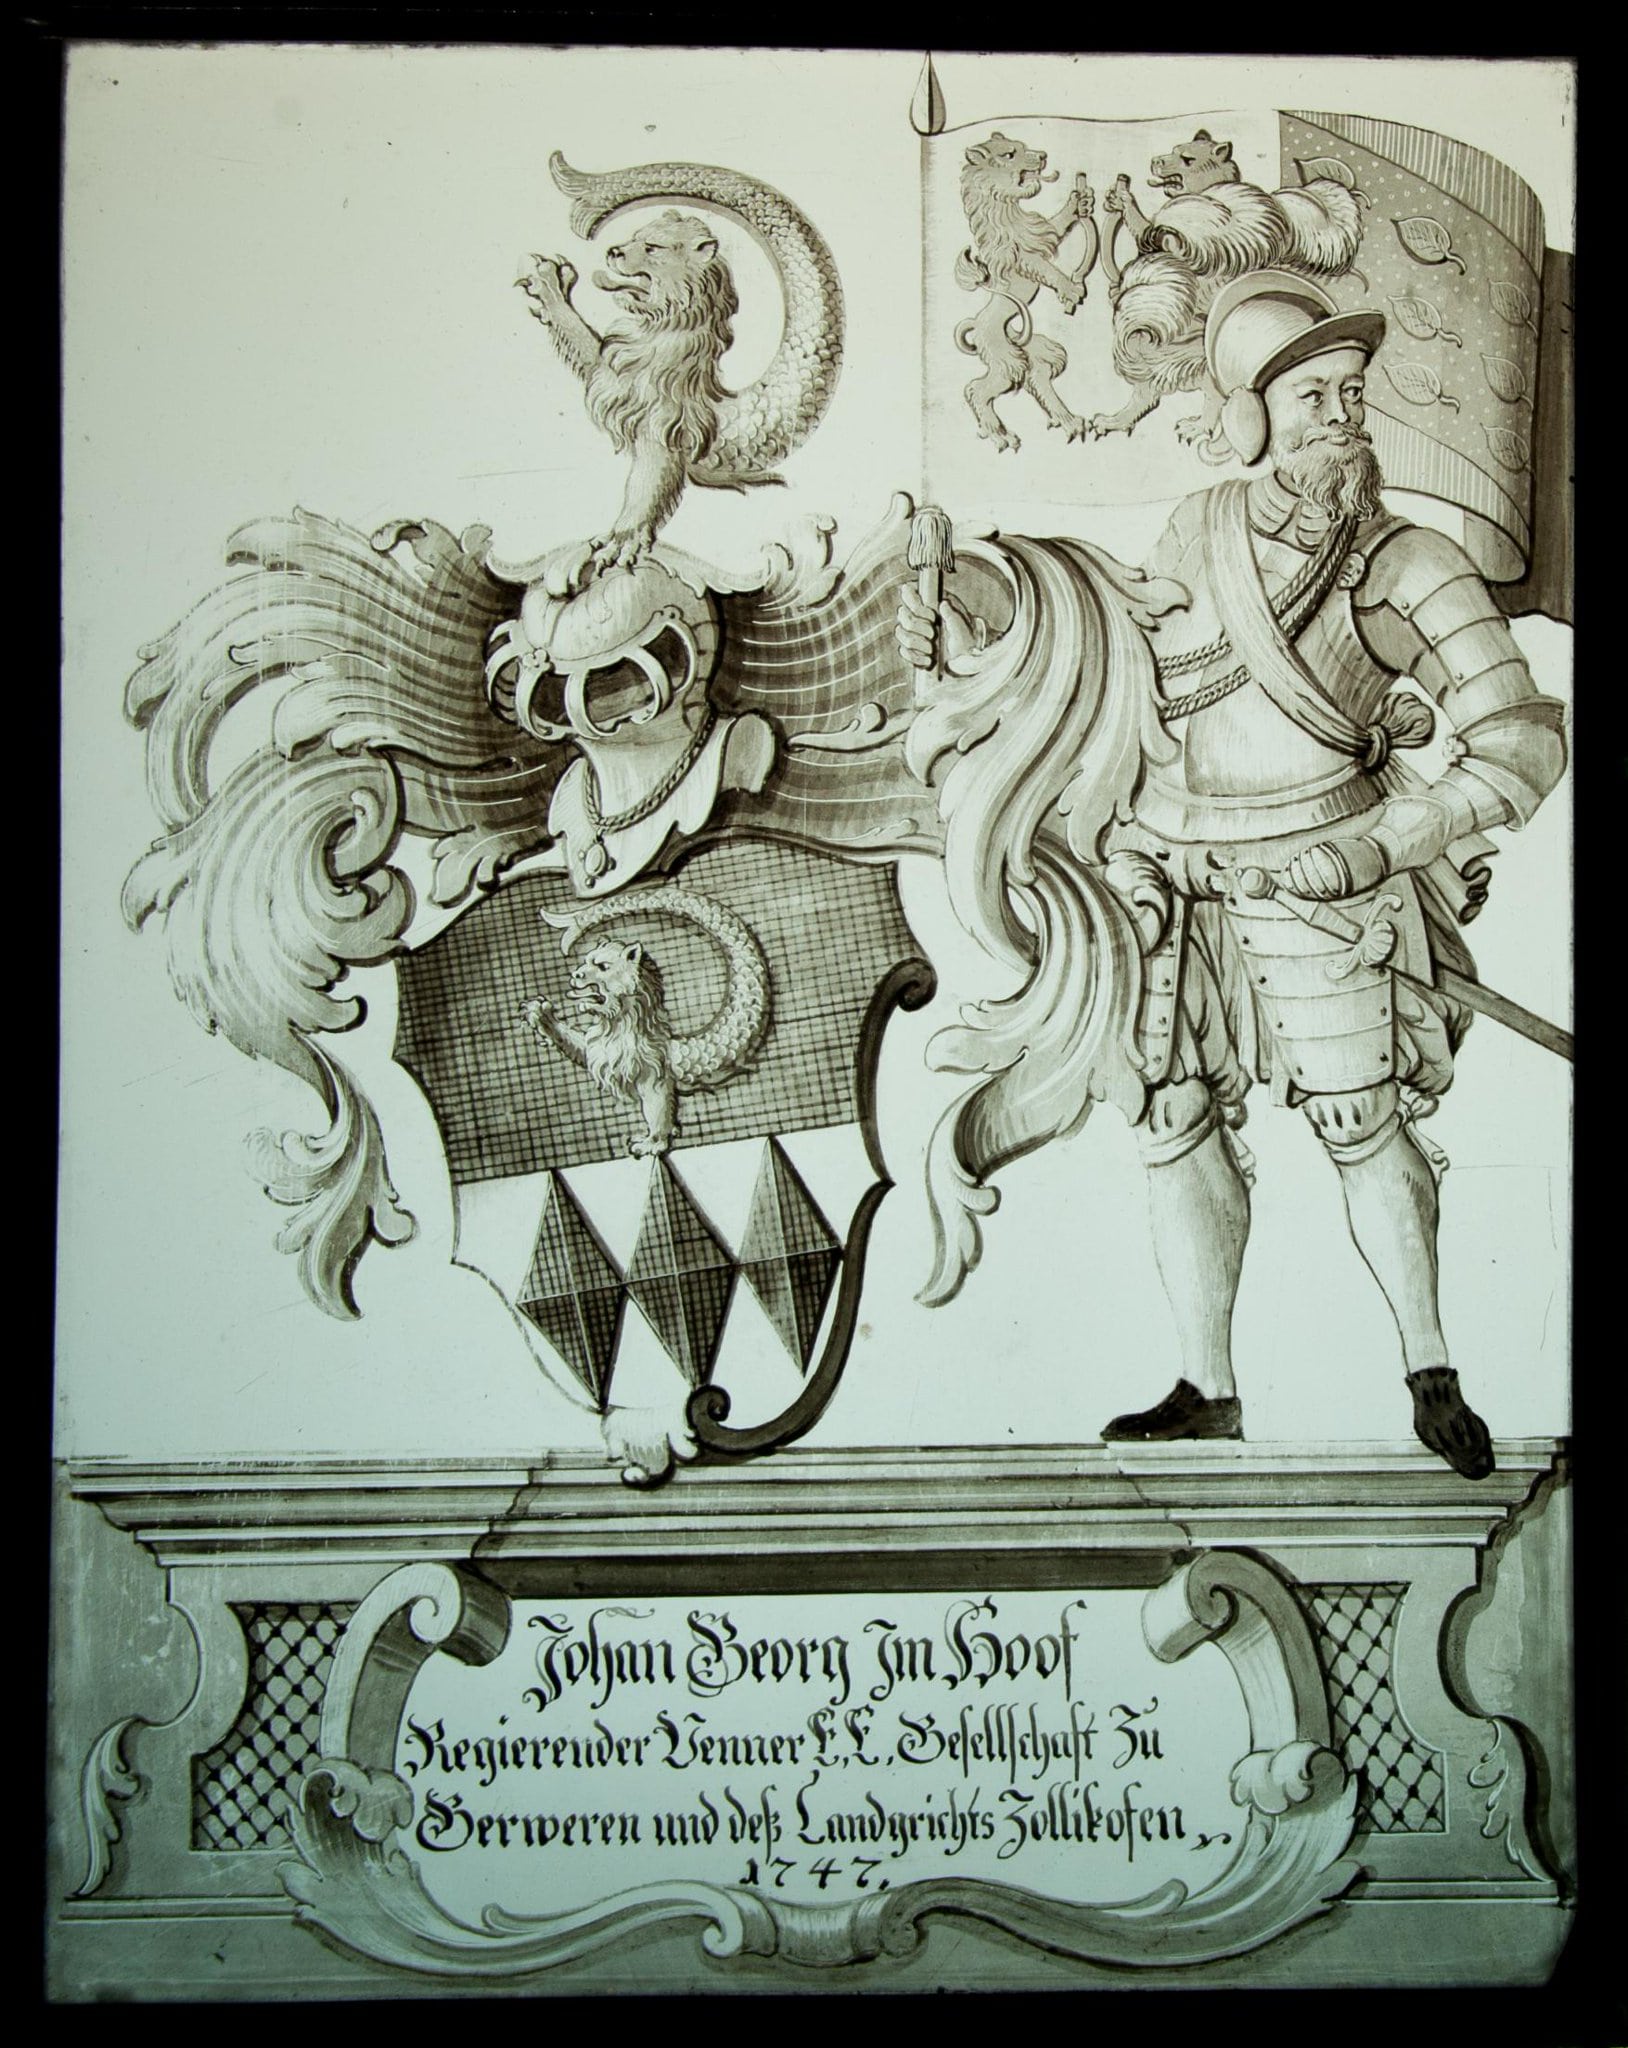 Johan Georg Im Hoof
Regierender Venner E, E, Gesellschafft Zu
Gerweren und deß Landgrichts Zollikofen,,
1747.